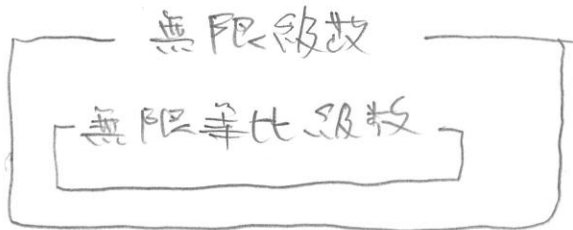 無限級数
無限等比級数